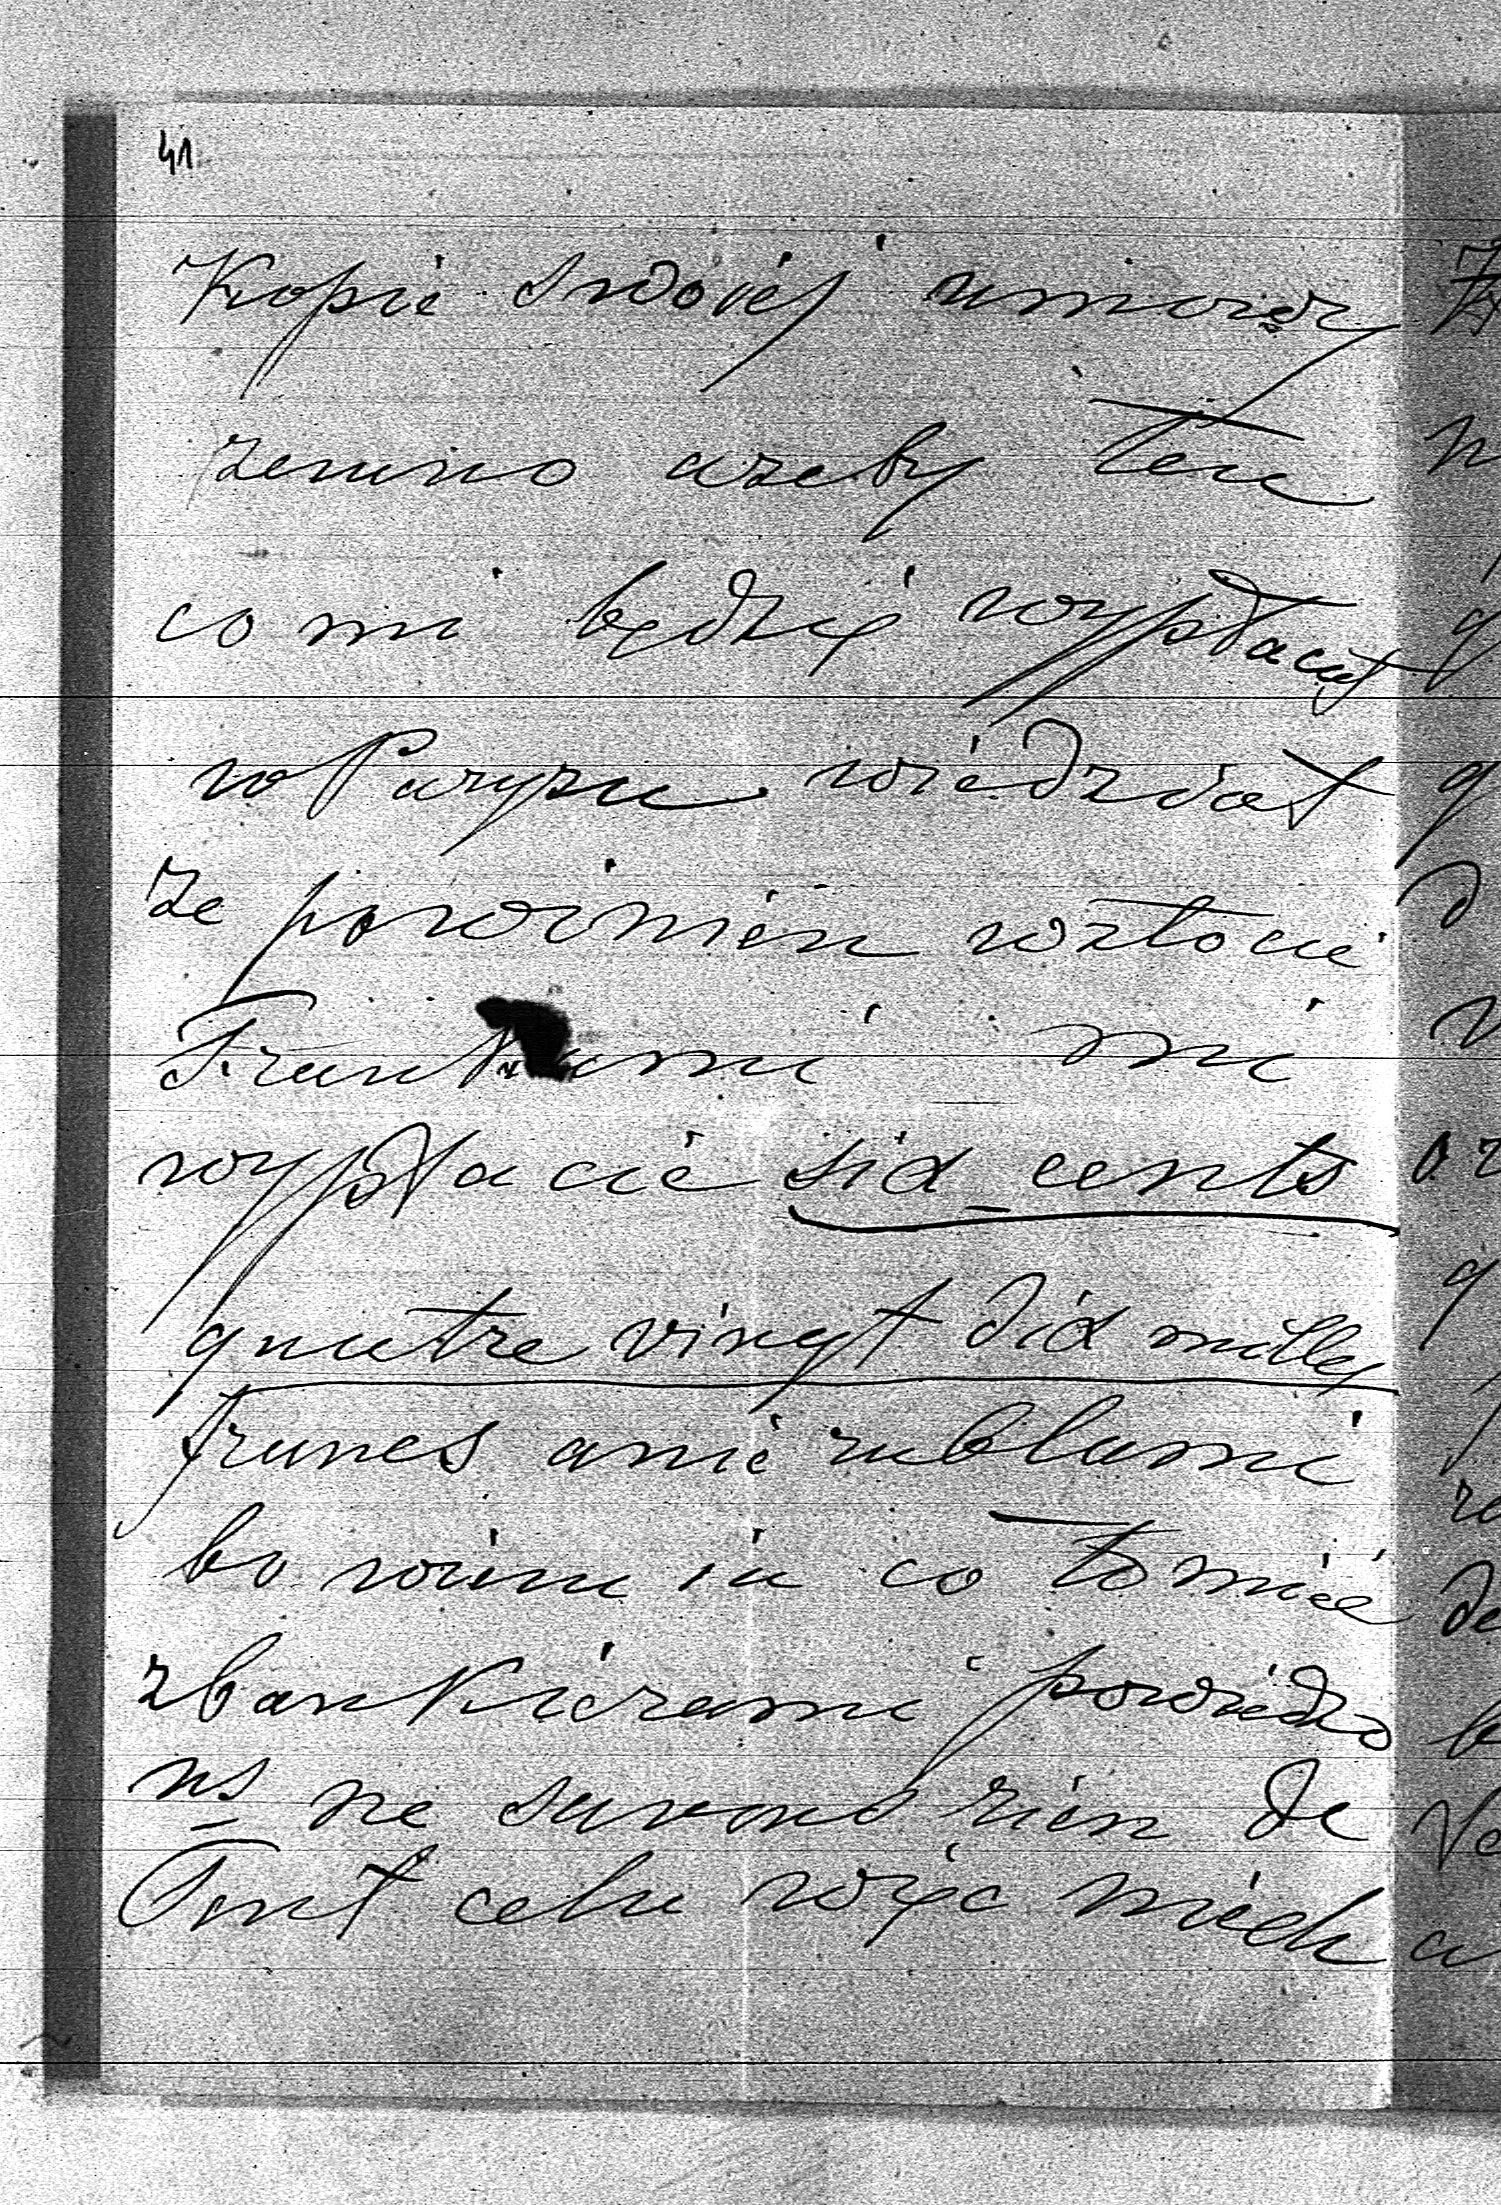 41
Kopie swojej umowy
zemno azeby ten
co mi będzię wypłacał
w Paryzu wiedział
ze powinien wzłocie
Frankami mi
wypłacie six cents
quatre vingt dix milles
francs anie rublami
bo wiem ia co to miec
zbankierami powiedzo
ns ne savons rien de
Tout cela więc niech